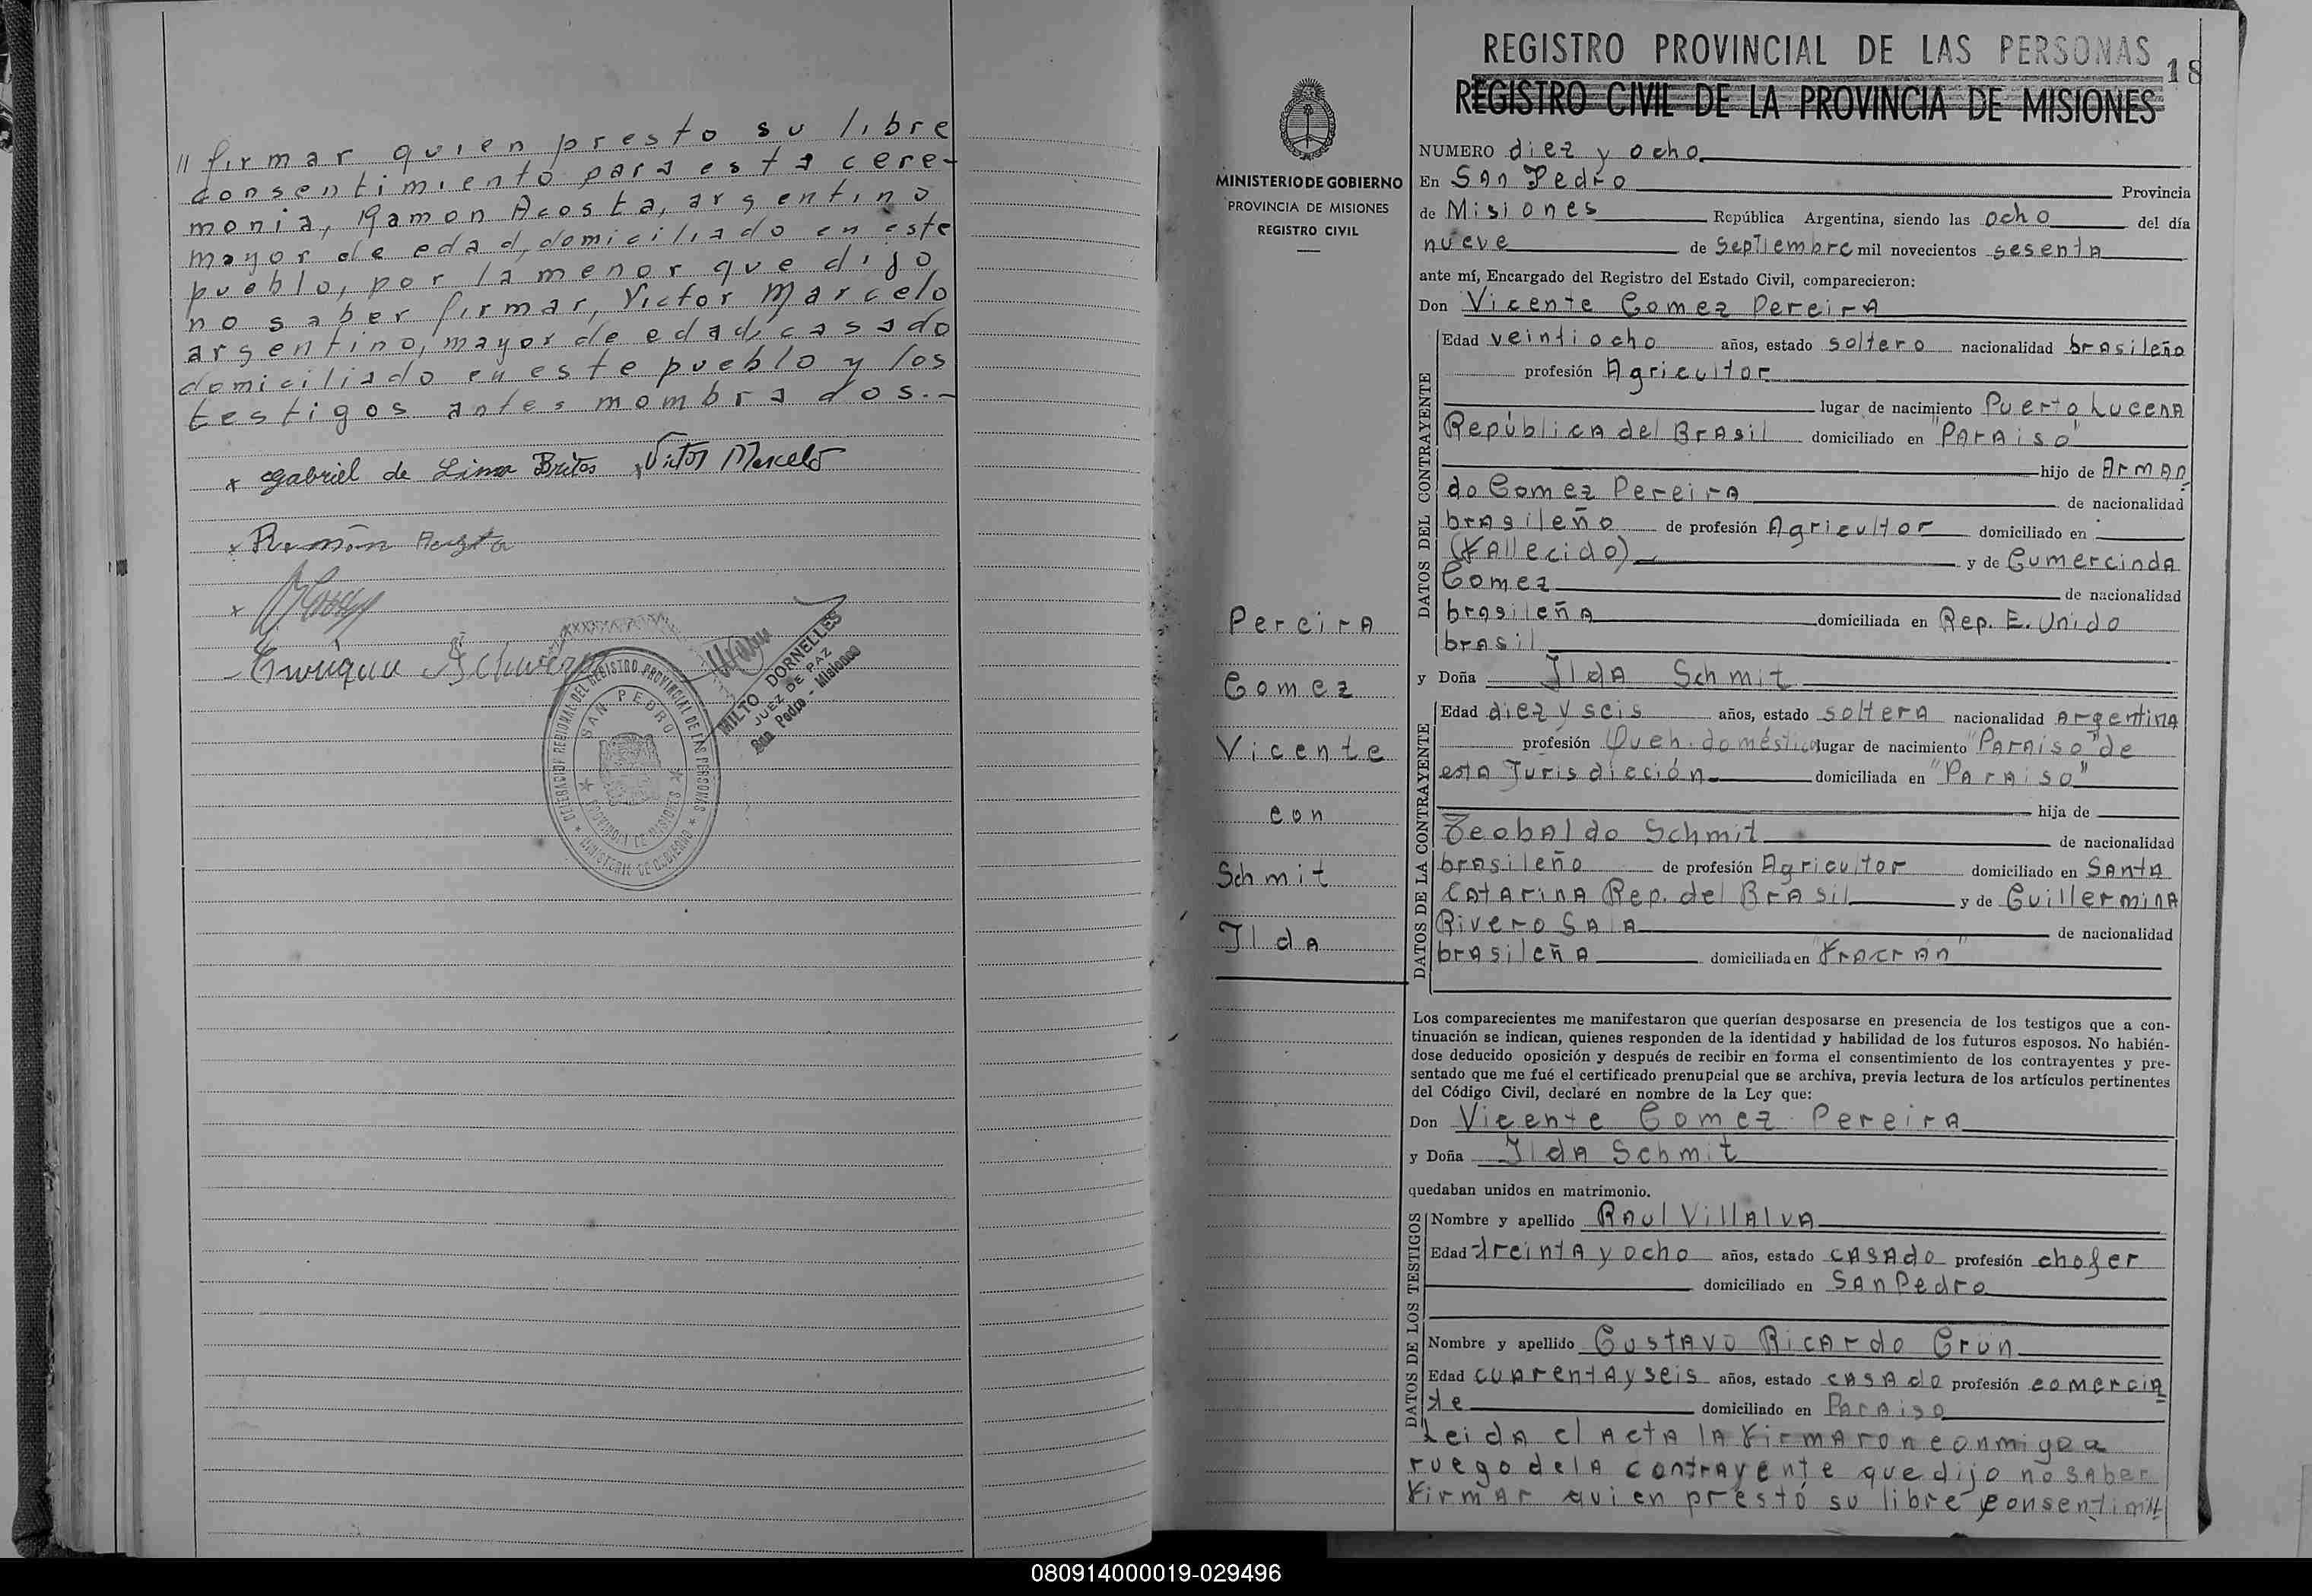 // firmar quien presto su libre
consentimiento para esta cere-
monia, Ramon Acosta, argentino
mayor de edad, domiciliado en este
pueblo, por la menor que dijo
no saber firmar, Victor Marcelo
argentino, mayor de edad, casado
domiciliado en este pueblo y los
testigos antes mombrados.-
x Gabriel de Lima Brites x Victor Marcelo
x Ramón Acosta
x
- Enrique
HILTO DORNELLES
JUEZ DE PAZ
San Pedro - Misiones
DELEGACION REGIONAL DEL REGISTRO PROVINCIAL DE LAS PERSONAS
SAN PEDRO
PROVINCIA DE MISIONES
MINISTERIO DE GOBIERNO
MINISTERIO DE GOBIERNO
PROVINCIA DE MISIONES
REGISTRO CIVIL
Pereira
Gomez
Vicente
con
Schmit
Ilda
REGISTRO PROVINCIAL DE LAS PERSONAS
18
REGISTRO CIVIL DE LA PROVINCIA DE MISIONES
NUMERO diez y ocho
En San Pedro Provincia
de Misiones República Argentina, siendo las ocho del día
nueve de Septiembre mil novecientos sesenta
ante mí, Encargado del Registro del Estado Civil, comparecieron:
Don Vicente Gomez Pereira
DATOS DEL CONTRAYENTE
Edad veintiocho años, estado soltero nacionalidad brasileño
profesión Agricultor
lugar de nacimiento Puerto Lucena
República del Brasil domiciliado en "Paraiso"
hijo de Arman
do Gomez Pereira de nacionalidad
brasileño de profesión Agricultor domiciliado en
(Fallecido) y de Gumercinda
Gomez de nacionalidad
brasileña domiciliada en Rep. E. Unido
brasil
y Doña Ilda Schmit
DATOS DE LA CONTRAYENTE
Edad diez y seis años, estado soltera nacionalidad Argentina
profesión Queh. doméstico lugar de nacimiento "Paraiso" de
esta Jurisdicción domiciliada en "Paraiso"
hija de
Teobaldo Schmit de nacionalidad
brasileño de profesión Agricultor domiciliado en Santa
Catarina Rep. del Brasil y de Guillermina
Rivero Sala de nacionalidad
brasileña domiciliada en "Fracran"
Los comparecientes me manifestaron que querían desposarse en presencia de los testigos que a con-
tinuación se indican, quienes responden de la identidad y habilidad de los futuros esposos. No habién-
dose deducido oposición y después de recibir en forma el consentimiento de los contrayentes y pre-
sentado que me fué el certificado prenupcial que se archiva, previa lectura de los artículos pertinentes
del Código Civil, declaré en nombre de la Ley que:
Don Vicente Gomez Pereira
y Doña Ilda Schmit
quedaban unidos en matrimonio.
DATOS DE LOS TESTIGOS
Nombre y apellido Raul Villalva
Edad treinta y ocho años, estado casado profesión chofer
domiciliado en San Pedro
Nombre y apellido Gustavo Ricardo Grun
Edad cuarenta y seis años, estado casado profesión comercia
te domiciliado en Paraiso
Leida el acta la firmaron conmigo a
ruego de la contrayente que dijo no saber
firmar quien prestó su libre consentim//
080914000019-029496